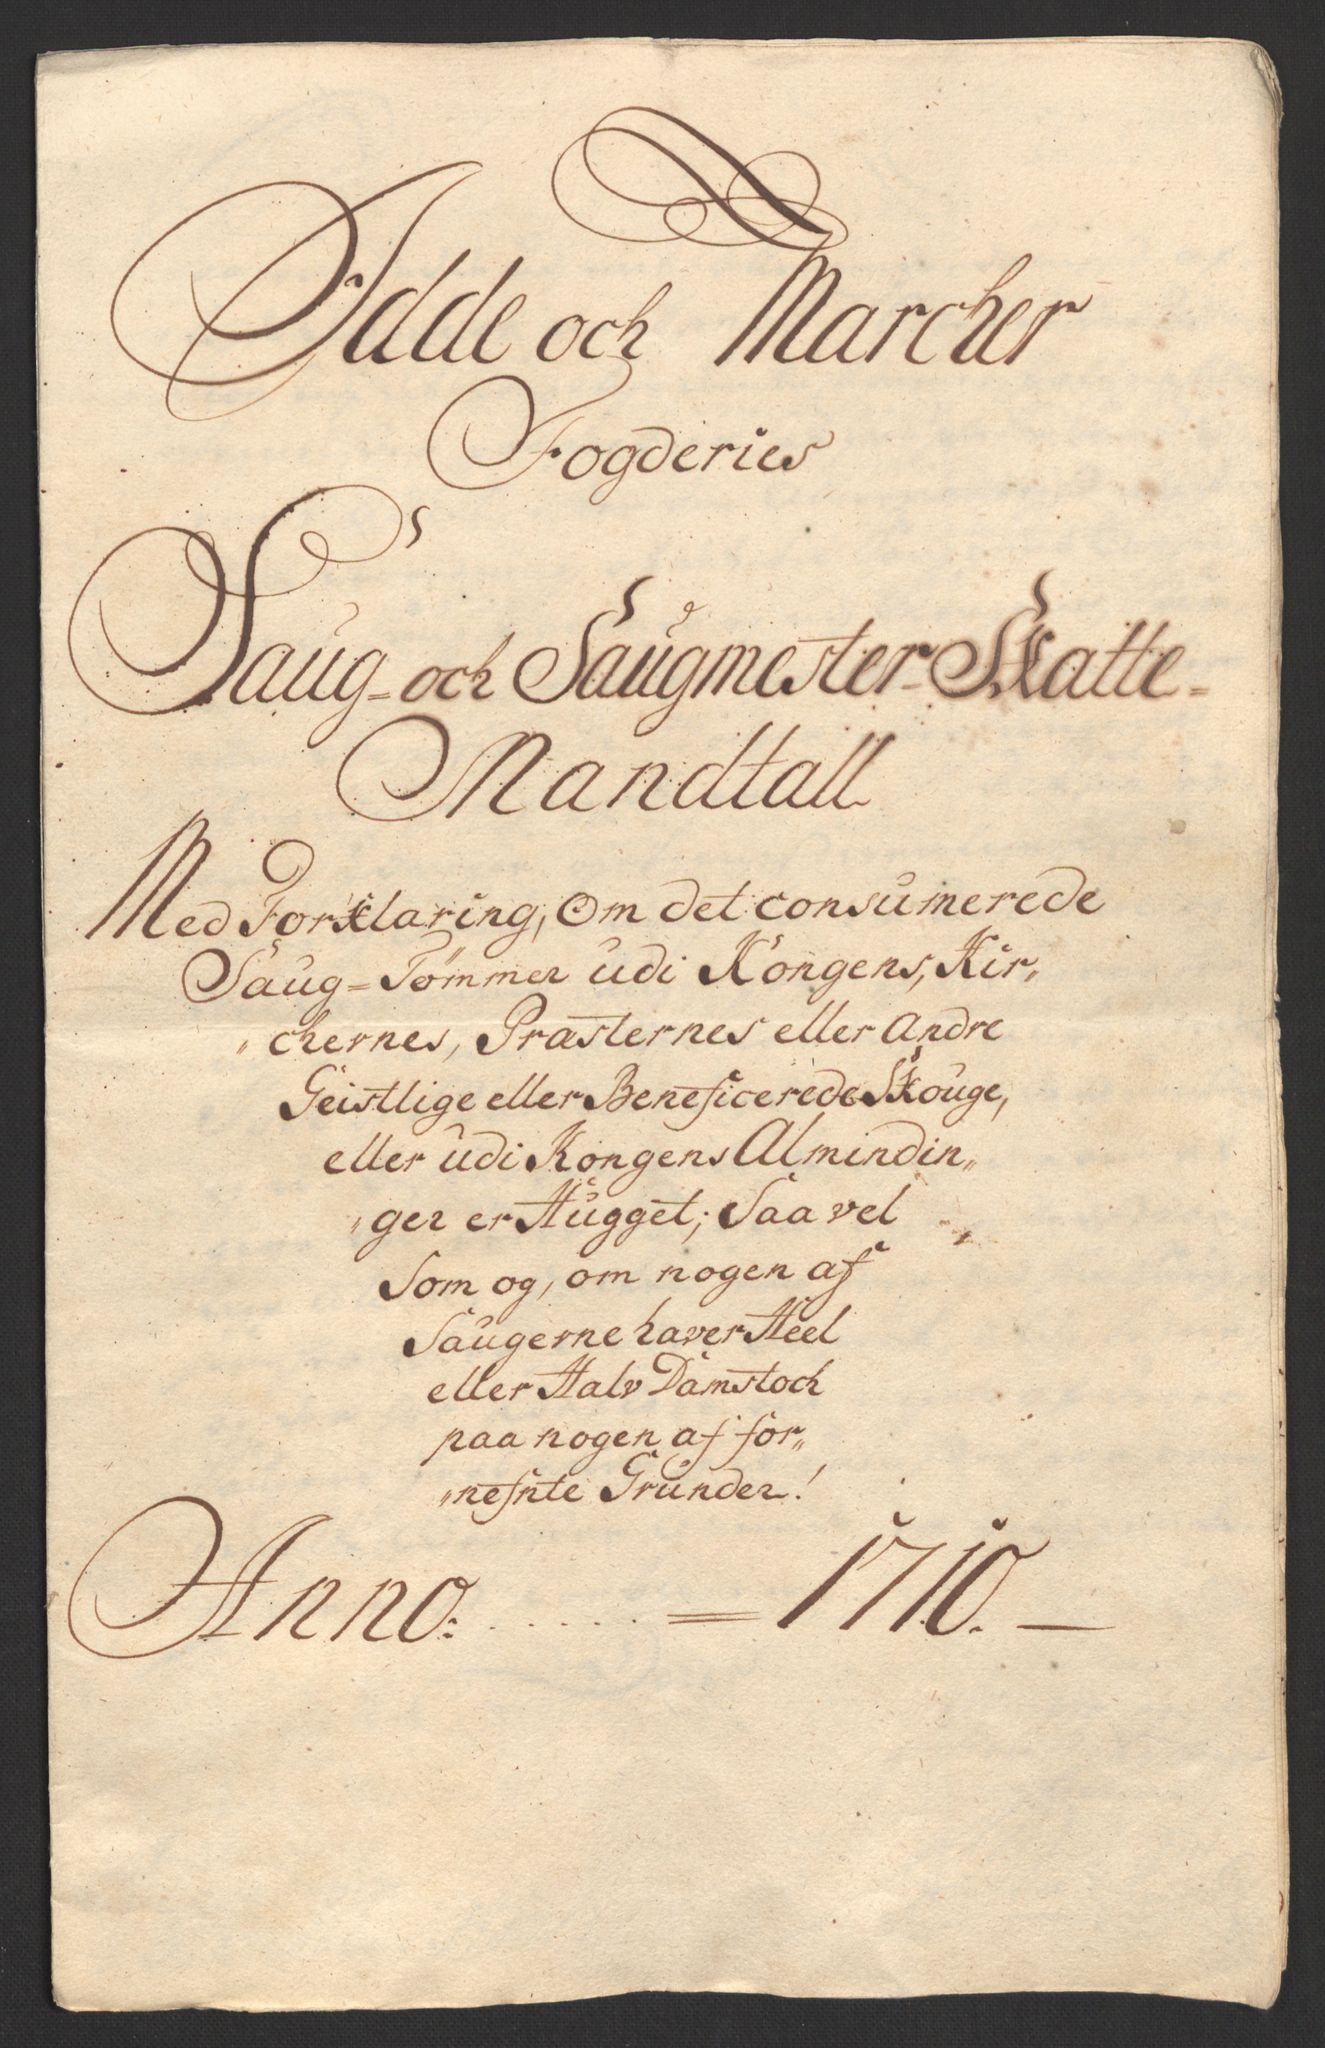 Idde och Marcher
Fogderies
Saug- och Saugmester-Skatte-
Mandtall
Med Forklaring, Om det consumerede
Saug-Tømmer udi Kongens, Kir„
„chernes, Præsternes eller Andre
Geistlige eller Beneficerede Skouge,
eller udi Kongens Almindin„
„ger er Hugget; Saa vel
Som og, om nogen af
Saugerne haver Heel
eller Halv Damstoch
paa nogen af for„
„nefnte Grunder!
Anno: ..... = 1710. —